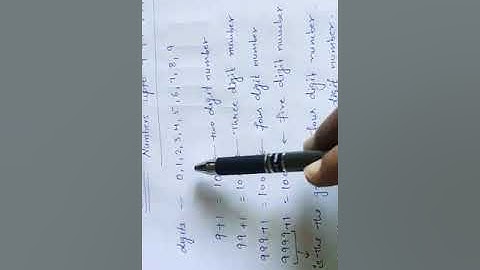 Numbers upto
digits – 0, 1, 2, 3, 4, 5, 6, 7, 8, 9
9+1 = 10 two digit number
99+1 = 10 three digit number
999+1 = 100 ← four digit number
9999+1 = 100 ← five digit number
is the four digit number.
digit number.